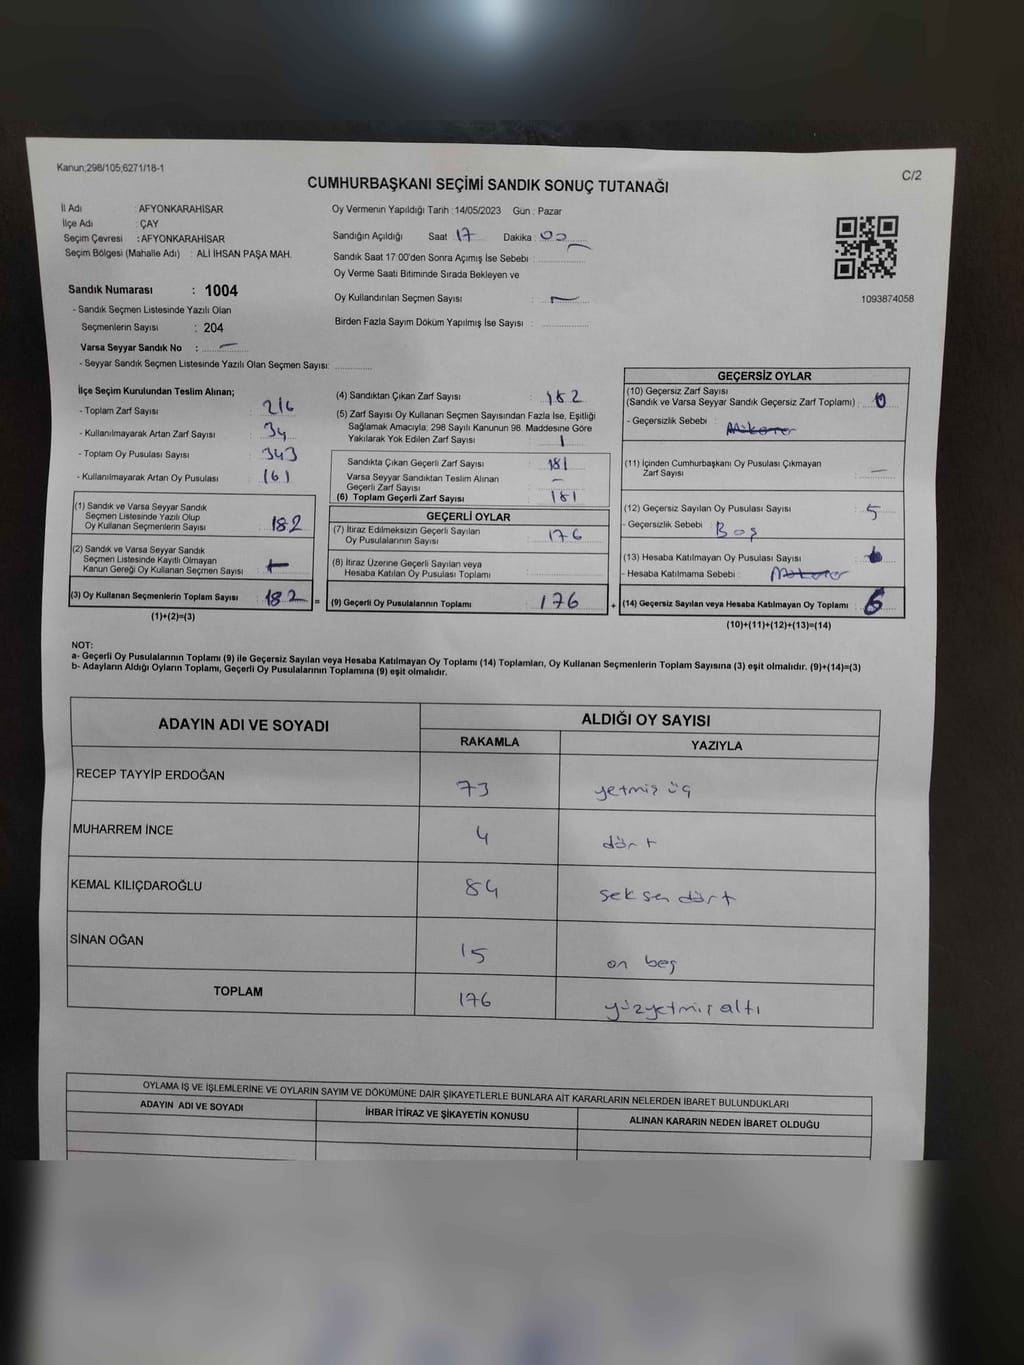 Kanun;298/105;6271/18-1
C/2
CUMHURBAŞKANI SEÇİMİ SANDIK SONUÇ TUTANAĞI
İl Adı : AFYONKARAHİSAR
İlçe Adı : ÇAY
Seçim Çevresi : AFYONKARAHİSAR
Seçim Bölgesi (Mahalle Adı) : ALİ İHSAN PAŞA MAH.
Sandık Numarası : 1004
- Sandık Seçmen Listesinde Yazılı Olan
Seçmenlerin Sayısı : 204
Varsa Seyyar Sandık No : –
- Seyyar Sandık Seçmen Listesinde Yazılı Olan Seçmen Sayısı:
Oy Vermenin Yapıldığı Tarih : 14/05/2023 Gün : Pazar
Sandığın Açıldığı Saat : 17 Dakika : 00
Sandık Saat 17:00'den Sonra Açımış İse Sebebi :
Oy Verme Saati Bitiminde Sırada Bekleyen ve
Oy Kullandırılan Seçmen Sayısı : –
Birden Fazla Sayım Döküm Yapılmış İse Sayısı :
1093874058
İlçe Seçim Kurulundan Teslim Alınan;
- Toplam Zarf Sayısı : 216
- Kullanılmayarak Artan Zarf Sayısı : 34
- Toplam Oy Pusulası Sayısı : 343
- Kullanılmayarak Artan Oy Pusulası : 161
(1) Sandık ve Varsa Seyyar Sandık
Seçmen Listesinde Yazılı Olup
Oy Kullanan Seçmenlerin Sayısı : 182
(2) Sandık ve Varsa Seyyar Sandık
Seçmen Listesinde Kayıtlı Olmayan
Kanun Gereği Oy Kullanan Seçmen Sayısı :
(3) Oy Kullanan Seçmenlerin Toplam Sayısı : 182 =
(1)+(2)=(3)
(4) Sandıktan Çıkan Zarf Sayısı : 182
(5) Zarf Sayısı Oy Kullanan Seçmen Sayısından Fazla İse, Eşitliği
Sağlamak Amacıyla; 298 Sayılı Kanunun 98. Maddesine Göre
Yakılarak Yok Edilen Zarf Sayısı : 1
Sandıkta Çıkan Geçerli Zarf Sayısı : 181
Varsa Seyyar Sandıktan Teslim Alınan
Geçerli Zarf Sayısı : –
(6) Toplam Geçerli Zarf Sayısı : 181
GEÇERLİ OYLAR
(7) İtiraz Edilmeksizin Geçerli Sayılan
Oy Pusulalarının Sayısı : 176
(8) İtiraz Üzerine Geçerli Sayılan veya
Hesaba Katılan Oy Pusulası Toplamı :
(9) Geçerli Oy Pusulalarının Toplamı : 176 +
GEÇERSİZ OYLAR
(10) Geçersiz Zarf Sayısı
(Sandık ve Varsa Seyyar Sandık Geçersiz Zarf Toplamı) : 0
- Geçersizlik Sebebi :
(11) İçinden Cumhurbaşkanı Oy Pusulası Çıkmayan
Zarf Sayısı : –
(12) Geçersiz Sayılan Oy Pusulası Sayısı : 5
- Geçersizlik Sebebi : Boş
(13) Hesaba Katılmayan Oy Pusulası Sayısı :
- Hesaba Katılmama Sebebi :
(14) Geçersiz Sayılan veya Hesaba Katılmayan Oy Toplamı : 6
(10)+(11)+(12)+(13)=(14)
NOT:
a- Geçerli Oy Pusulalarının Toplamı (9) ile Geçersiz Sayılan veya Hesaba Katılmayan Oy Toplamı (14) Toplamları, Oy Kullanan Seçmenlerin Toplam Sayısına (3) eşit olmalıdır. (9)+(14)=(3)
b- Adayların Aldığı Oyların Toplamı, Geçerli Oy Pusulalarının Toplamına (9) eşit olmalıdır.
ADAYIN ADI VE SOYADI ALDIĞI OY SAYISI
RAKAMLA YAZIYLA
RECEP TAYYİP ERDOĞAN 73 yetmiş üç
MUHARREM İNCE 4 dört
KEMAL KILIÇDAROĞLU 84 seksen dört
SİNAN OĞAN 15 on beş
TOPLAM 176 yüzyetmiş altı
OYLAMA İŞ VE İŞLEMLERİNE VE OYLARIN SAYIM VE DÖKÜMÜNE DAİR ŞİKAYETLERLE BUNLARA AİT KARARLARIN NELERDEN İBARET BULUNDUKLARI
ADAYIN ADI VE SOYADI İHBAR İTİRAZ VE ŞİKAYETİN KONUSU ALINAN KARARIN NEDEN İBARET OLDUĞU